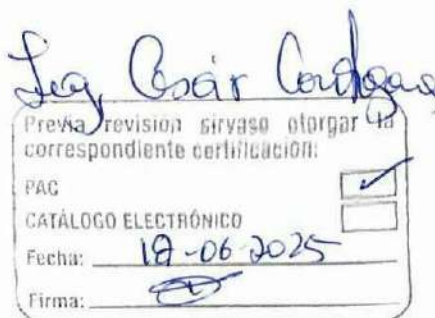 Ing. César
Previa revisión sírvase otorgar la
correspondiente certificación:
PAC
CATÁLOGO ELECTRÓNICO
Fecha: -06-2025
Firma: